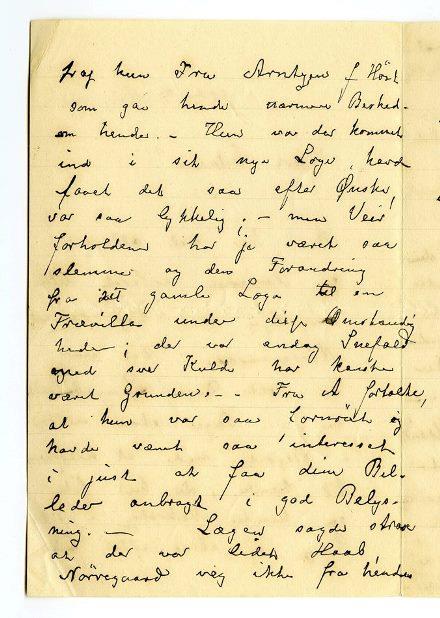 traf hun Fru Arntzen f Höst
som gav hende nærmere Besked
om hende. – Hun var da kommet
ind i sit nye Logi, havde
faaet det saa efter Ønske,
var saa lykkelig; – men Veir
forholdene har jo været saa
slemme og den Forandring
fra det gamle Logi til en
Trævilla under disse Omstændig
heder; der var endog Snefald
med svær Kulde har kanske
været Grunden. – Fru A fortalte,
at hun var saa fornöiet og
havde været saa interesset
i just at faa dine Bil-
leder anbragt i god Belys-
ning. – Lægen sagde strax
at der var lidet Haab
Nörregaard veg ikke fra hendes